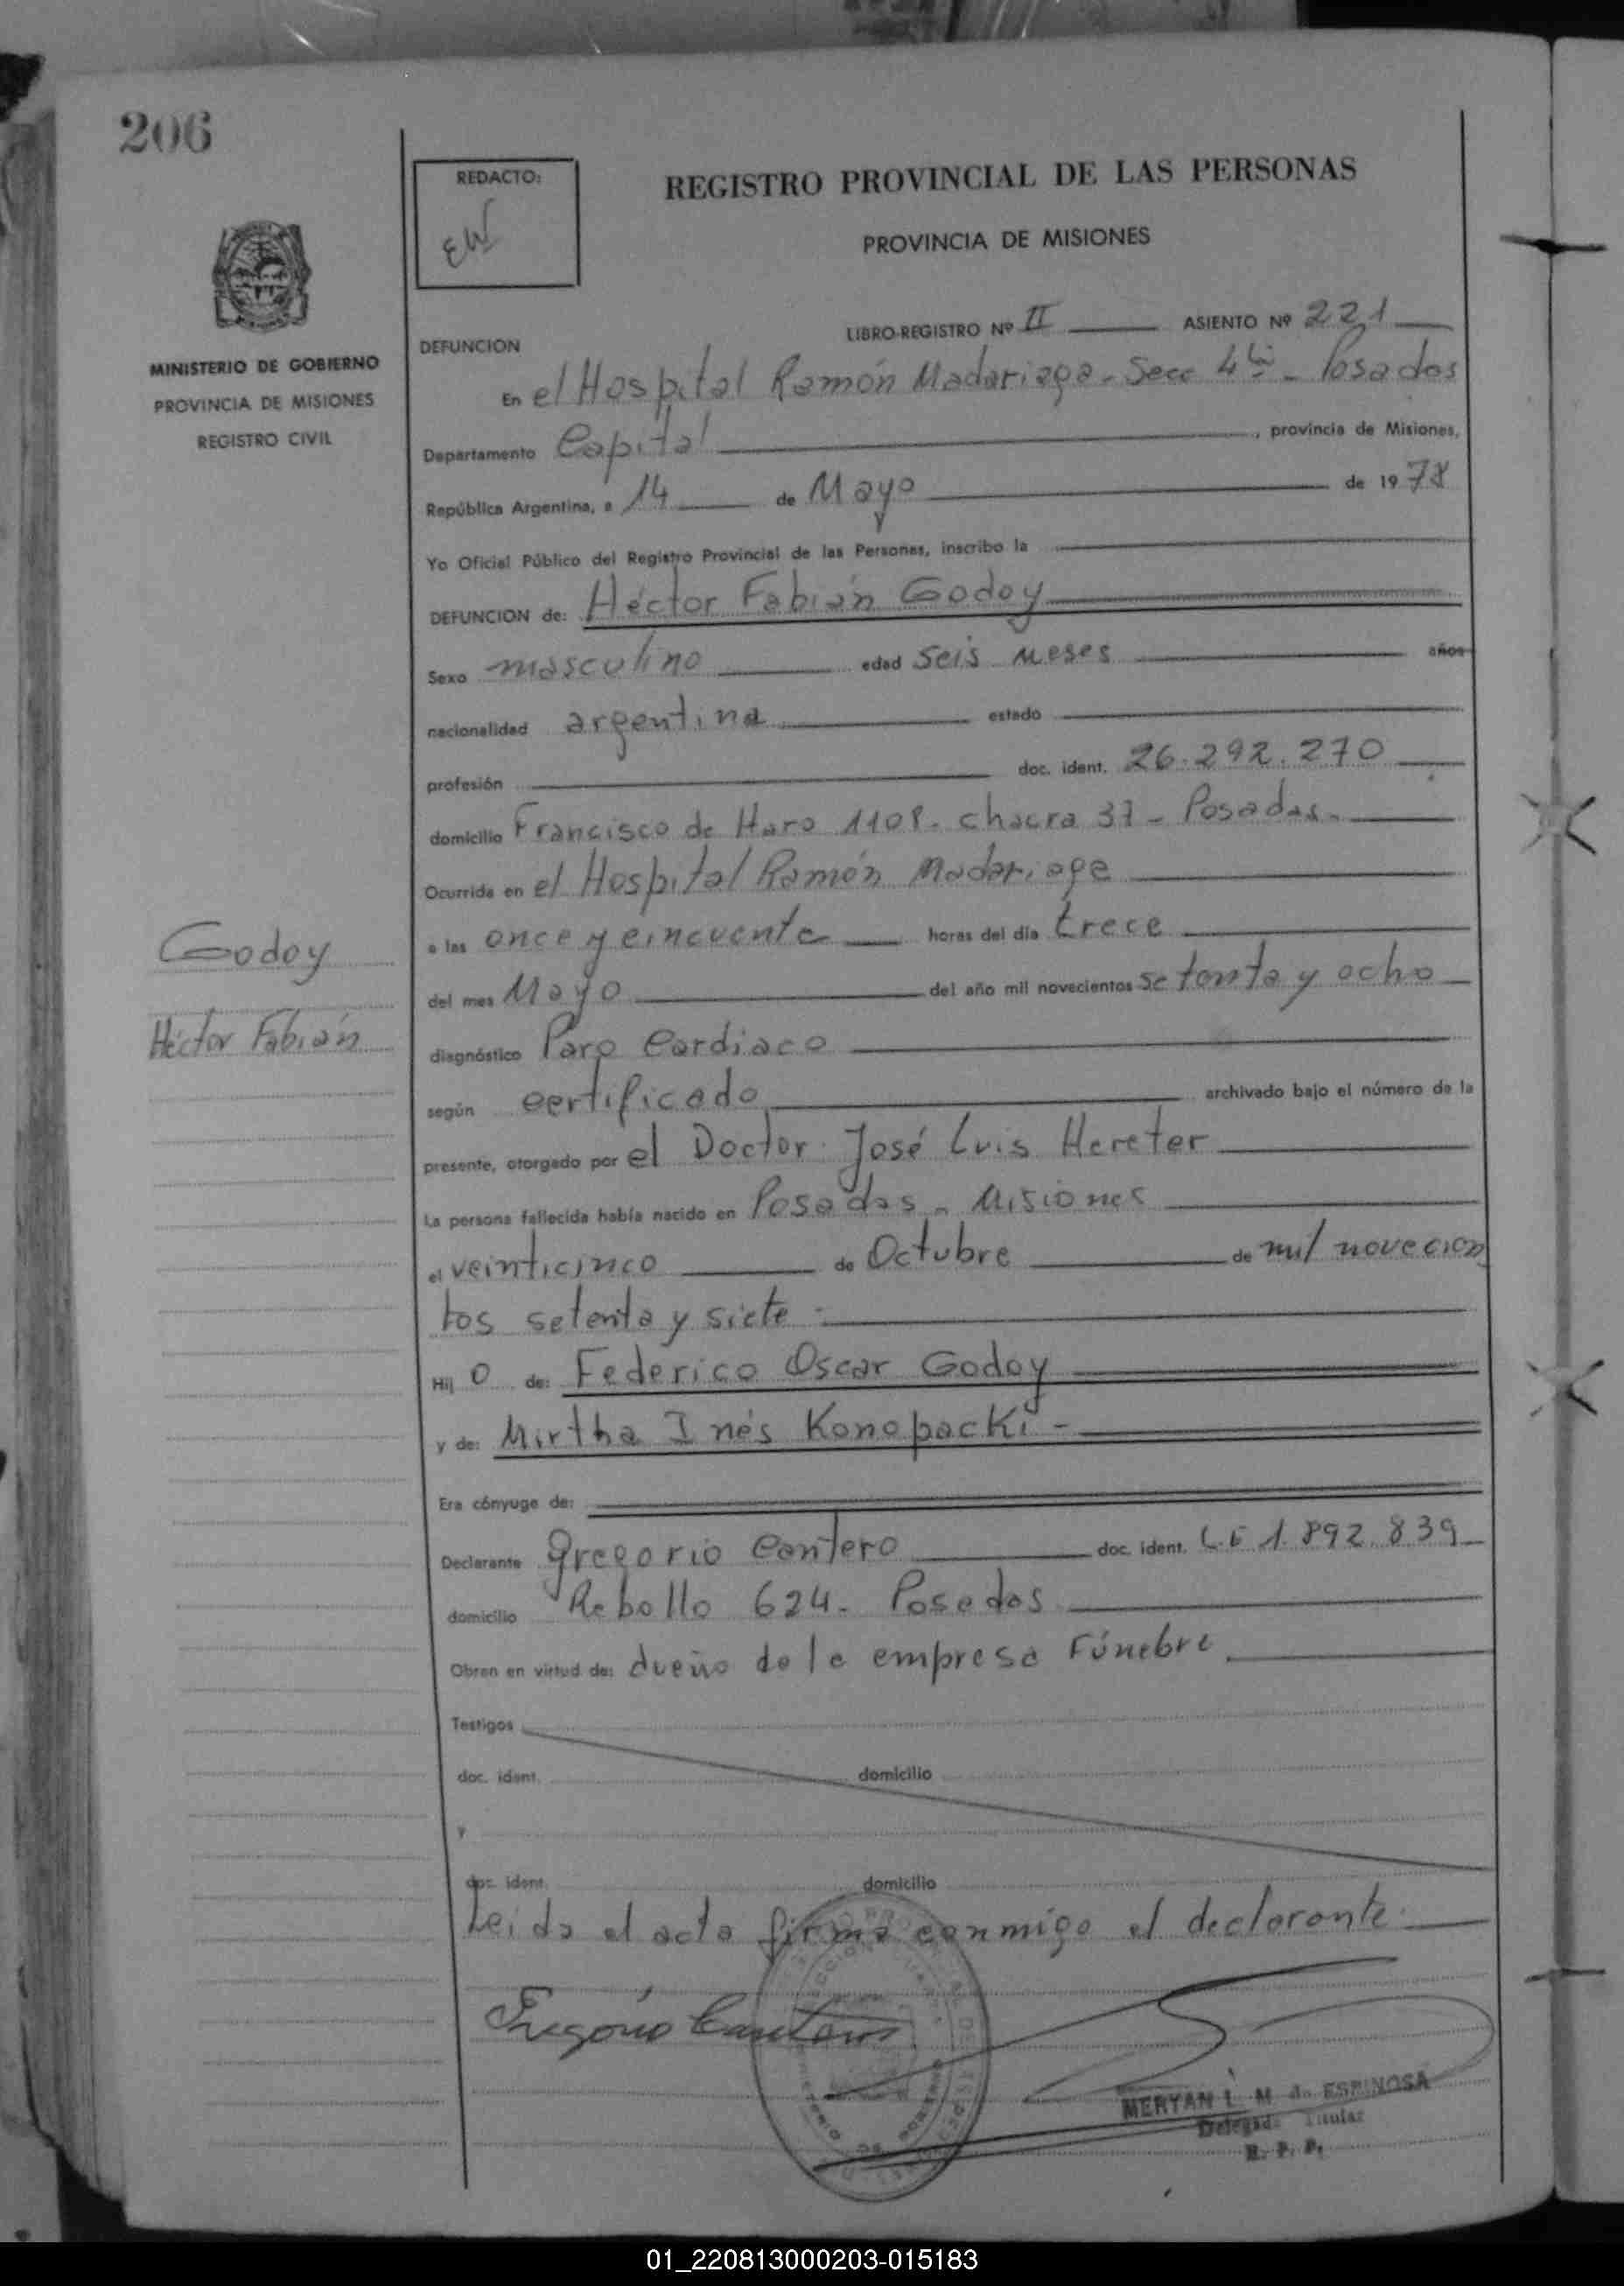 206
REDACTO:
EW
REGISTRO PROVINCIAL DE LAS PERSONAS
PROVINCIA DE MISIONES
MINISTERIO DE GOBIERNO
PROVINCIA DE MISIONES
REGISTRO CIVIL
LIBRO-REGISTRO Nº II ASIENTO Nº 221
DEFUNCION
En el Hospital Ramón Madariaga - Secc 4ta - Posadas
Departamento Capital, provincia de Misiones,
República Argentina, a 14 de Mayo de 1978
Yo Oficial Público del Registro Provincial de las Personas, inscribo la
DEFUNCION de: Héctor Fabián Godoy
Sexo masculino edad seis meses años
nacionalidad argentina estado
profesión doc. ident. 26.292.270
domicilio Francisco de Haro 1108. chacra 37 - Posadas.
Ocurrida en el Hospital Ramón Madariaga
a las once y cincuenta horas del día trece
del mes Mayo del año mil novecientos setenta y ocho
diagnóstico Paro Cardiaco
según certificado archivado bajo el número de la
presente, otorgado por el Doctor José Luis Hereter
La persona fallecida había nacido en Posadas - Misiones
el veinticinco de Octubre de mil novecien
tos setenta y siete -
Hij o de: Federico Oscar Godoy
y de: Mirtha Inés Konopacki -
Era cónyuge de:
Declarante Gregorio Cantero doc. ident. L.E 1.892.839
domicilio Rebollo 624 - Posadas
Obran en virtud de: dueño de la empresa Fúnebre
Testigos
doc. ident. domicilio
y
doc. ident. domicilio
Leida el acta firma conmigo el declarante.
Gregorio Cantero
MERYAN L. M. de ESPINOSA
Delegada Titular
R. P. P.
Godoy
Héctor Fabián
01_220813000203-015183